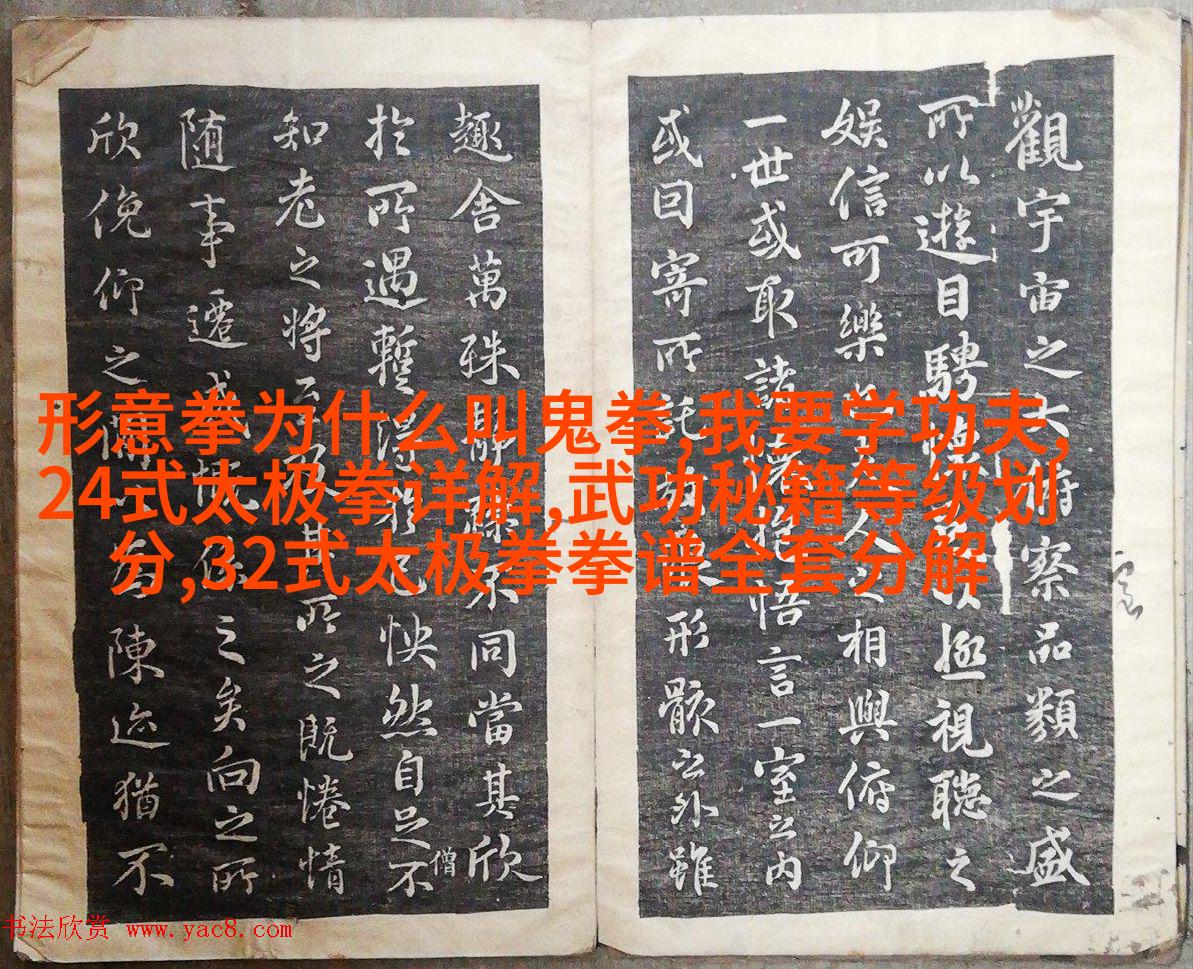 觀宇宙之大府察品類之盛
所以遊目騁極視聽之
娱信可樂人之相與俯仰
一世或取諸抱悟言一室之内
或因寄所託形骸之外雖
趣舍萬殊不同當其欣
於所遇暫得怏然自足不
僧
知老之將其所之既惓情
随事遷係之矣向之所
欣俛仰之陳迹猶不
形意拳为什么叫鬼拳,我要学功夫,
24式太极拳详解,武功秘籍等级划
分,32式太极拳拳谱全套分解
书法欣赏 www.yac8.com